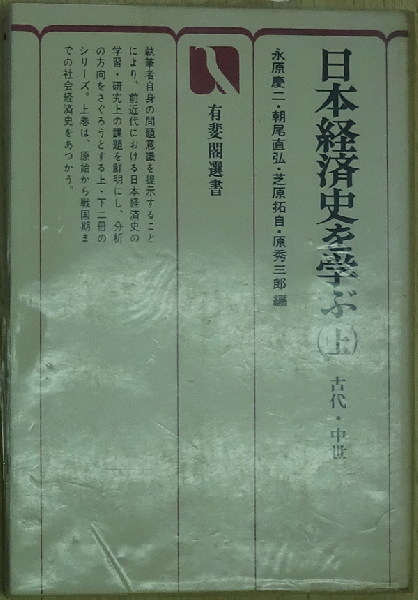 日本経済史を学ぶ(上)
古代・中世
永原慶二・朝尾直弘・芝原拓自・原秀三郎 編
有斐閣選書
執筆者自身の問題意識を提示すること
により、前近代における日本経済史の
学習・研究上の課題を鮮明にし、分析
の方向をさぐろうとする上・下二冊の
シリーズ。上巻は、原始から戦国期ま
での社会経済史をあつかう。